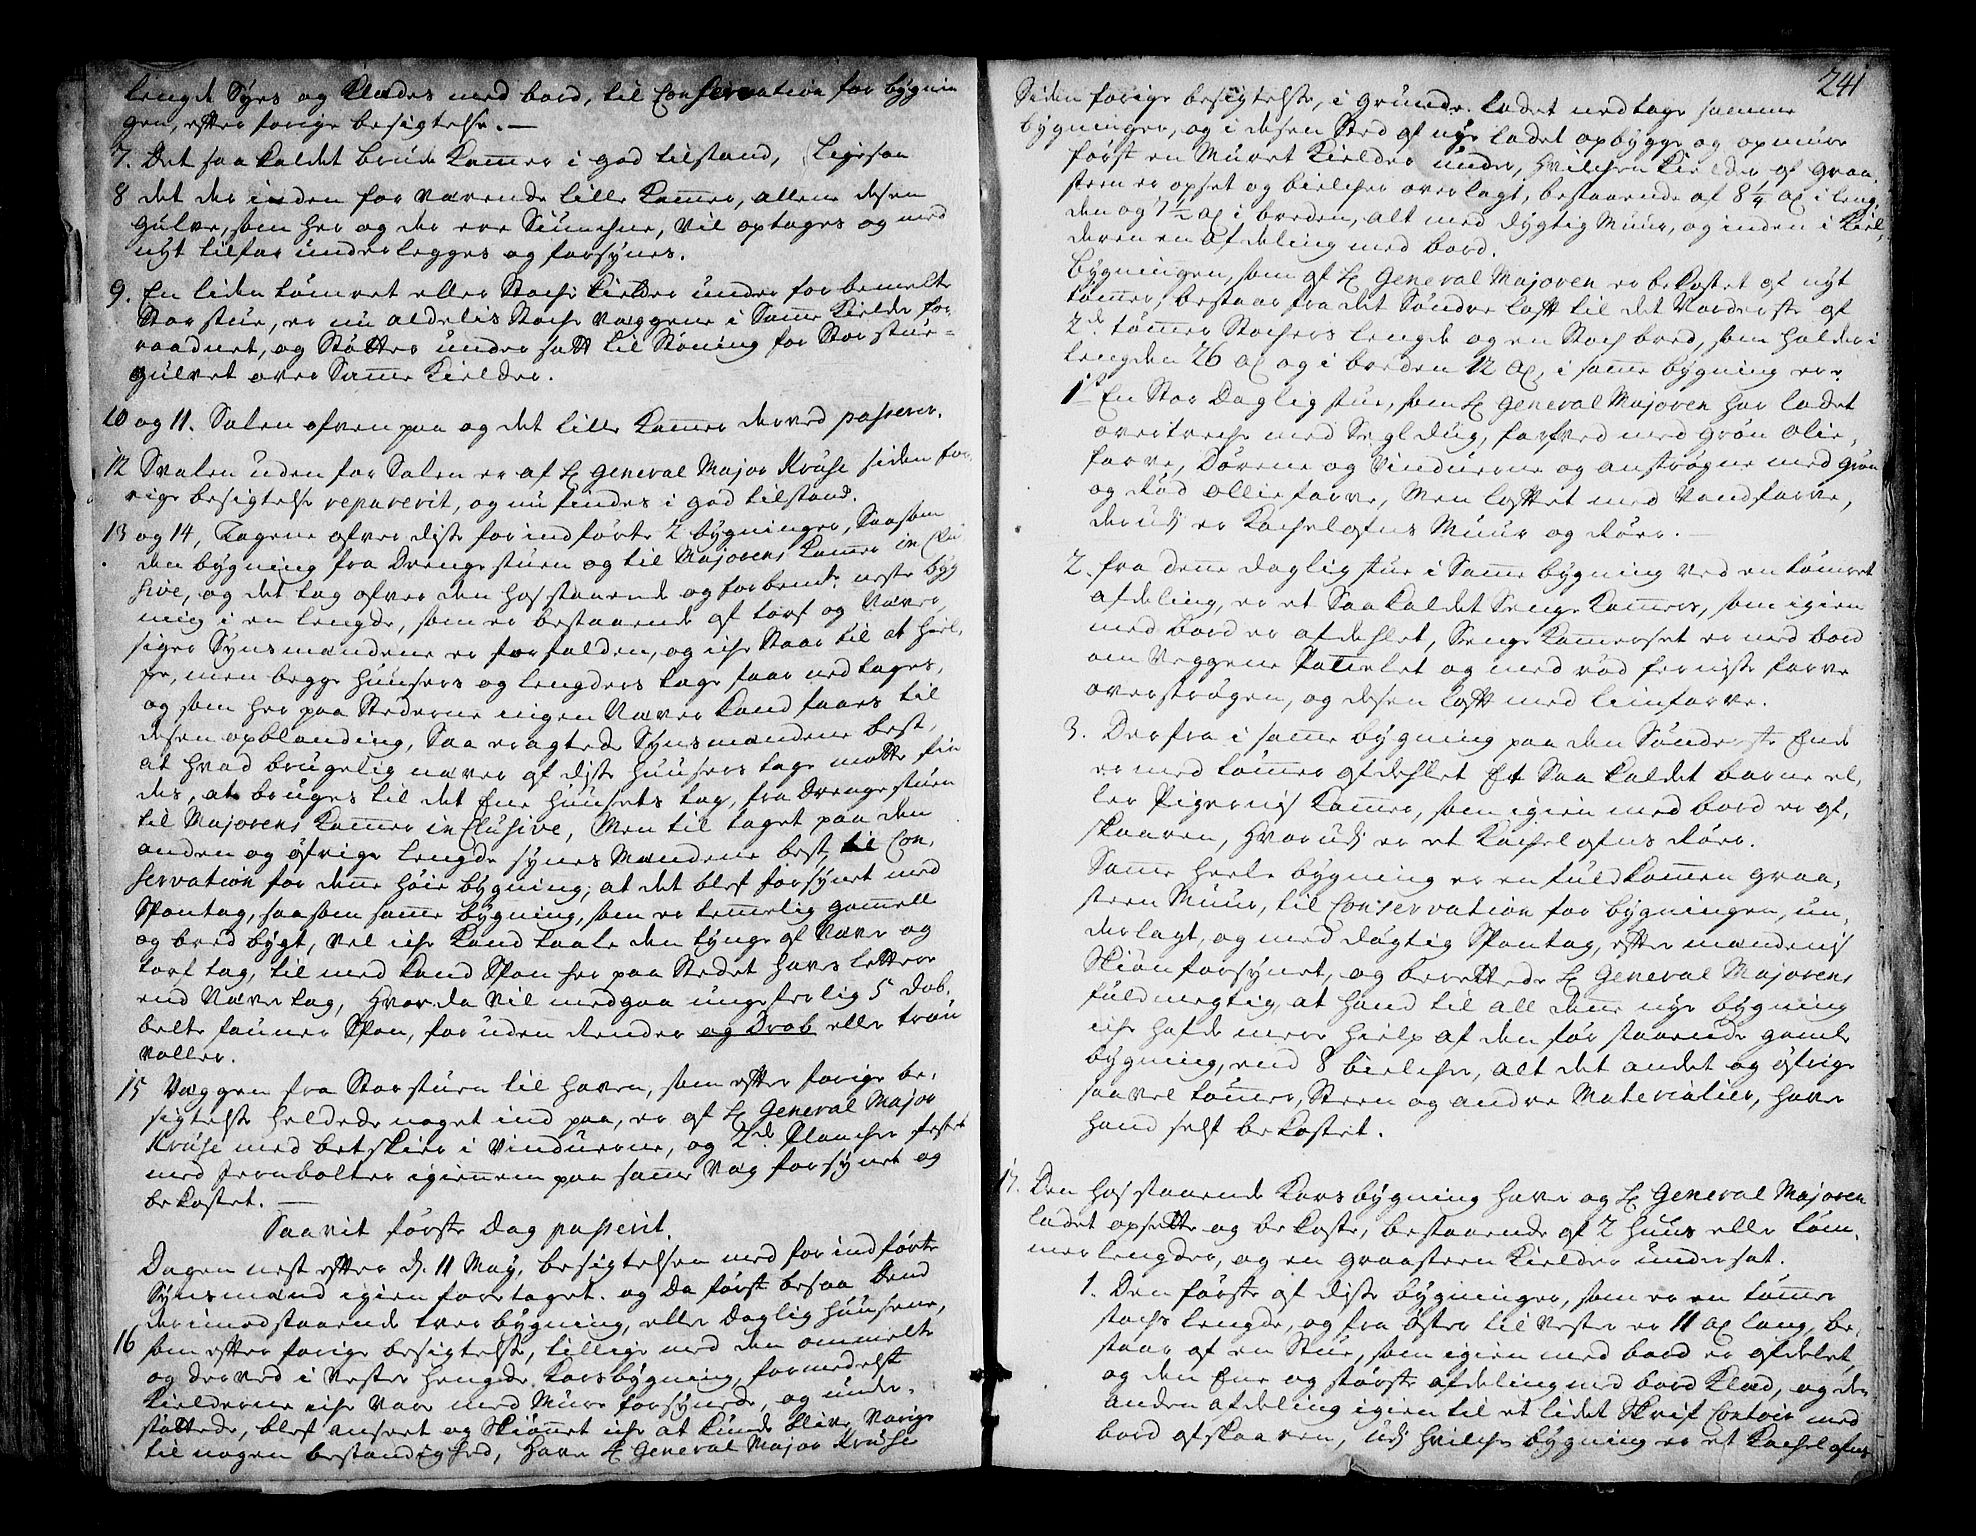 lengde Syes og Klædes med bord, til Conservation for bygnin
gen, efter forige besigtelse. —
7. Det saa kaldet brude Kamer i god tilstand, Ligesaa
8 det der inden for værende lille Kamer, allene desen
gulve, som her og der ere Siunchne, vil optages og med
nyt tilfar underlegges og forsynes.
9. En liden tømret eller Stoche Kielder under forbemelte
Storstue, er nu aldelis Stoche væggene i Same Kielder for,
raadnet, og Støtter under satt til Støning for Storstue-
gulvet over Same Kielder.
10 og 11. Salen ofven paa og det lille Kamer derved passerer.
12 Svalen uden for Salen er af H: General Major Kruse siden for,
rige besigtelse reparerit, og nu findes i god tilstand.
13 og 14, Tagene ofver diste forindførte 2 bygninger, Saasom
den bygning fra Drengestuen og til Majorens Kamer in Clu-
sive, og det tag ofver den hosstaaende og forbende neste byg
ning i en lengde, som er bestaaende af torf og Næver,
siger Synsmændene er forfalden, og iche Staar til at hiel,
pe, men begge huusers og lengders tage faar nedtages,
og som her paa Stederne ingen Næver Kand faaes til
desen opblanding, Saa eragtede Synsmændene best,
at hvad brugelig næver af diste huusers tage motte fin
des, at bruges til det Ene huusets tag, fra Drengestuen
til Majorens Kamer inClusive, Men til taget paa den
anden og øfrige lengde synes Mændene best, til Con,
servation for dene høie bygning, at det blef forsynet med
Spontag, saasom same bygning, som er temelig gamell
og bred bygt, vel iche Kand taale den tynge af Næver og
torf tag, til med Kand Spon her paa Stedet haves lettere
end Næver tag, hvorda vil medgaa ungeferlig 5 Dob,
belte fauner Spon, foruden Render og Drob eller trøn
voller.
15 Væggen fra Storstuen til haven, som efter forige be,
sigtelse heldede noget ind paa, er af H: General Major
Kruse med betskier i Vinduerne, og 2de Plancher festet
med Jernbolter igienem paa same Væg forsynet og
bekostet. —
Saavit første Dag passerit.
Dagen nest efter d. 11 May, besigtelsen med forindførte
Synsmænd igien foretaget. og Da først besaa Dend
derimodstaaende tver bygning, eller Daglig huusene,
16 som efter forige besigtelse, tillige med den ommelte
og derved i Vester hengde Korsbygning, formedelst
Kielderne iche vare med Mure forsynede, og under,
støttede, blef anseet og Skiønnet iche at kunde blive varig
til nogen bestandighed, haver H: General Major Kruse
241
Siden forige besigtelse, i grunde ladet nedtage samme
bygninger, og i desen sted af nye ladet opbygge og opmure
først en Muret Kielder under, hvilchen Kielder af graa,
steen er opset og bielcher overlagt, bestaaende af 8 1/4 al i leng,
den og 7 1/2 al i breden, alt med dygtig Muur, og inden i Kiel,
deren en afdeling med bord.
bygningen, som af H: General Majoren er bekostet af nyt
tømer, bestaar fra det Søndre loft til det Norderste af
2de tømer Stochers lengde og en Stoch bred, som holder i
lengden 26 al og i breden 12 al, i same bygning er:
1st En Stor Daglig stue, som H: General Majoren har ladet
overtreche med Segldug, farfved med grøn olie,
farve, Dørene og Vinduerne og anstrøgne med grøn
og Rød ollie farve, Men loftet med Vandfarve,
derudj er Kachelofns Muur og Røer. —
2. fra dene dagligstue i Same bygning ved en tømret
afdeling, er et Saa kaldet Senge Kamers, som igien
med bord er afdehlet, Senge Kamerset er med bord
om Veggene Panelet og med rød ferniste farve
overstrøgen, og desen loft med limfarve.
3. Derfra i same bygning paa den Sønderste Ende
er med tømer afdehlet Et Saa kaldet barne el,
ler Pigernis Kamer, som igien med bord er af,
skaaren, hvorudj er et Kachelofns Røer.
Same heele bygning er en fuldkomen graa,
steen Muur, til Conservation for bygningen, un,
derlagt, og med dygtig Spontag, efter mændenis
Skiøn forsynet, og berettede H: General Majorens
fuldmegtig, at hand til all dene nye bygning
iche hafde mere hielp af den før staaende gamle
bygning, end 8 bielcher, alt det andet og øfrige
saavel tømer, Steen og andre Materialier, haver
hand self bekostet.
17. Den hosstaaende Korsbygning haver og H: General Majoren
ladet opsette og bekoste, bestaaende af 2 huus eller tøm,
merlengder, og en graasteen Kielder undersat.
1. Den første af diste bygninger, som er en tømer
stochs lengde, og fra Øster til Vester er 11 al lang, be,
staar af en Stue, som igien med bord er afdelet,
og den Ene og største afdeling med bord Klæd, og den
anden afdeling igien til et lidet Skrif Contoir med
bord afskaaren, udj hvilche bygning er et Kachelofns